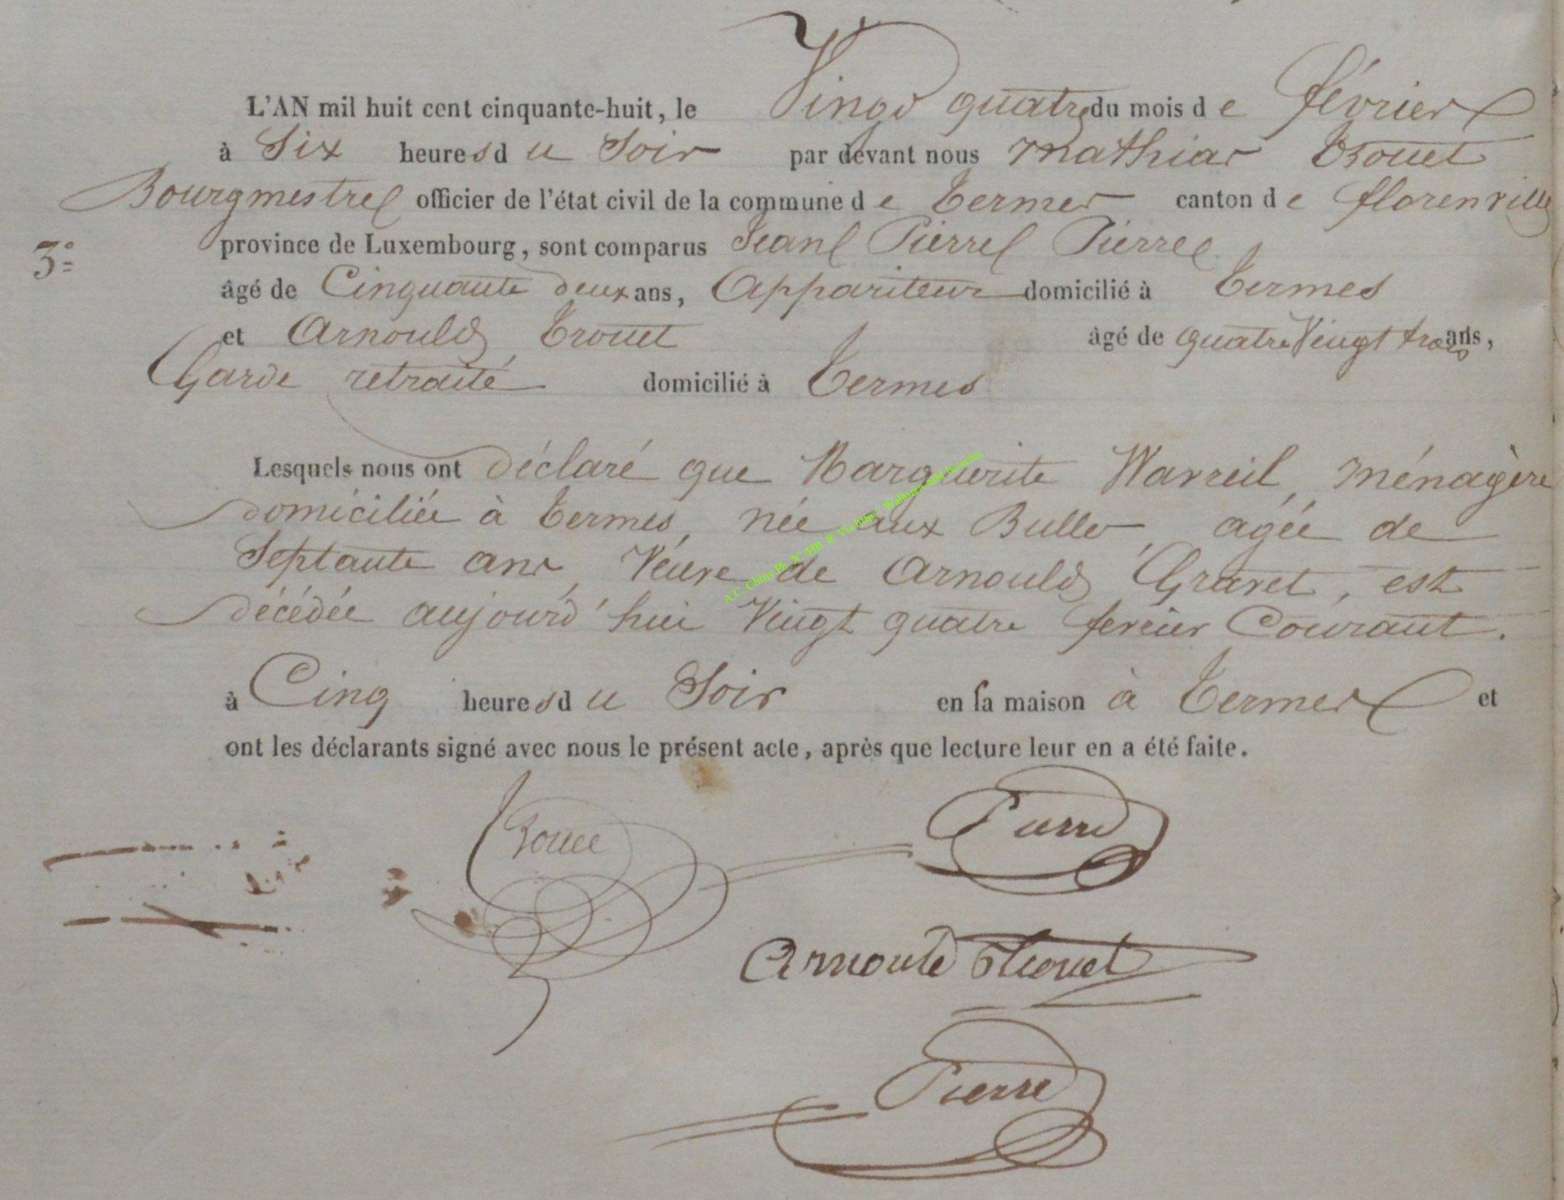 L'AN mil huit cent cinquante-huit, le Vingt quatre du mois d e février
à Six heure s d u Soir par devant nous Mathias Trouet
Bourgmestre officier de l'état civil de la commune d e Termes canton d e florenville
3°
province de Luxembourg, sont comparus Jean Pierre Pierre
âgé de Cinquante deux ans, Appariteur domicilié à Termes
et Arnould Trouet âgé de quatre Vingt trois ans,
Garde retraité domicilié à Termes
Lesquels nous ont déclaré que Marguerite Wavreil, ménagère
domiciliée à Termes, née aux Bulles, agée de
Septante ans, Veuve de Arnould Gravet, est
décédée aujourd'hui Vingt quatre fevrier Courant.
à Cinq heure s d u Soir en sa maison à Termes et
ont les déclarants signé avec nous le présent acte, après que lecture leur en a été faite.
Pierre
Arnould Trouet
Pierre